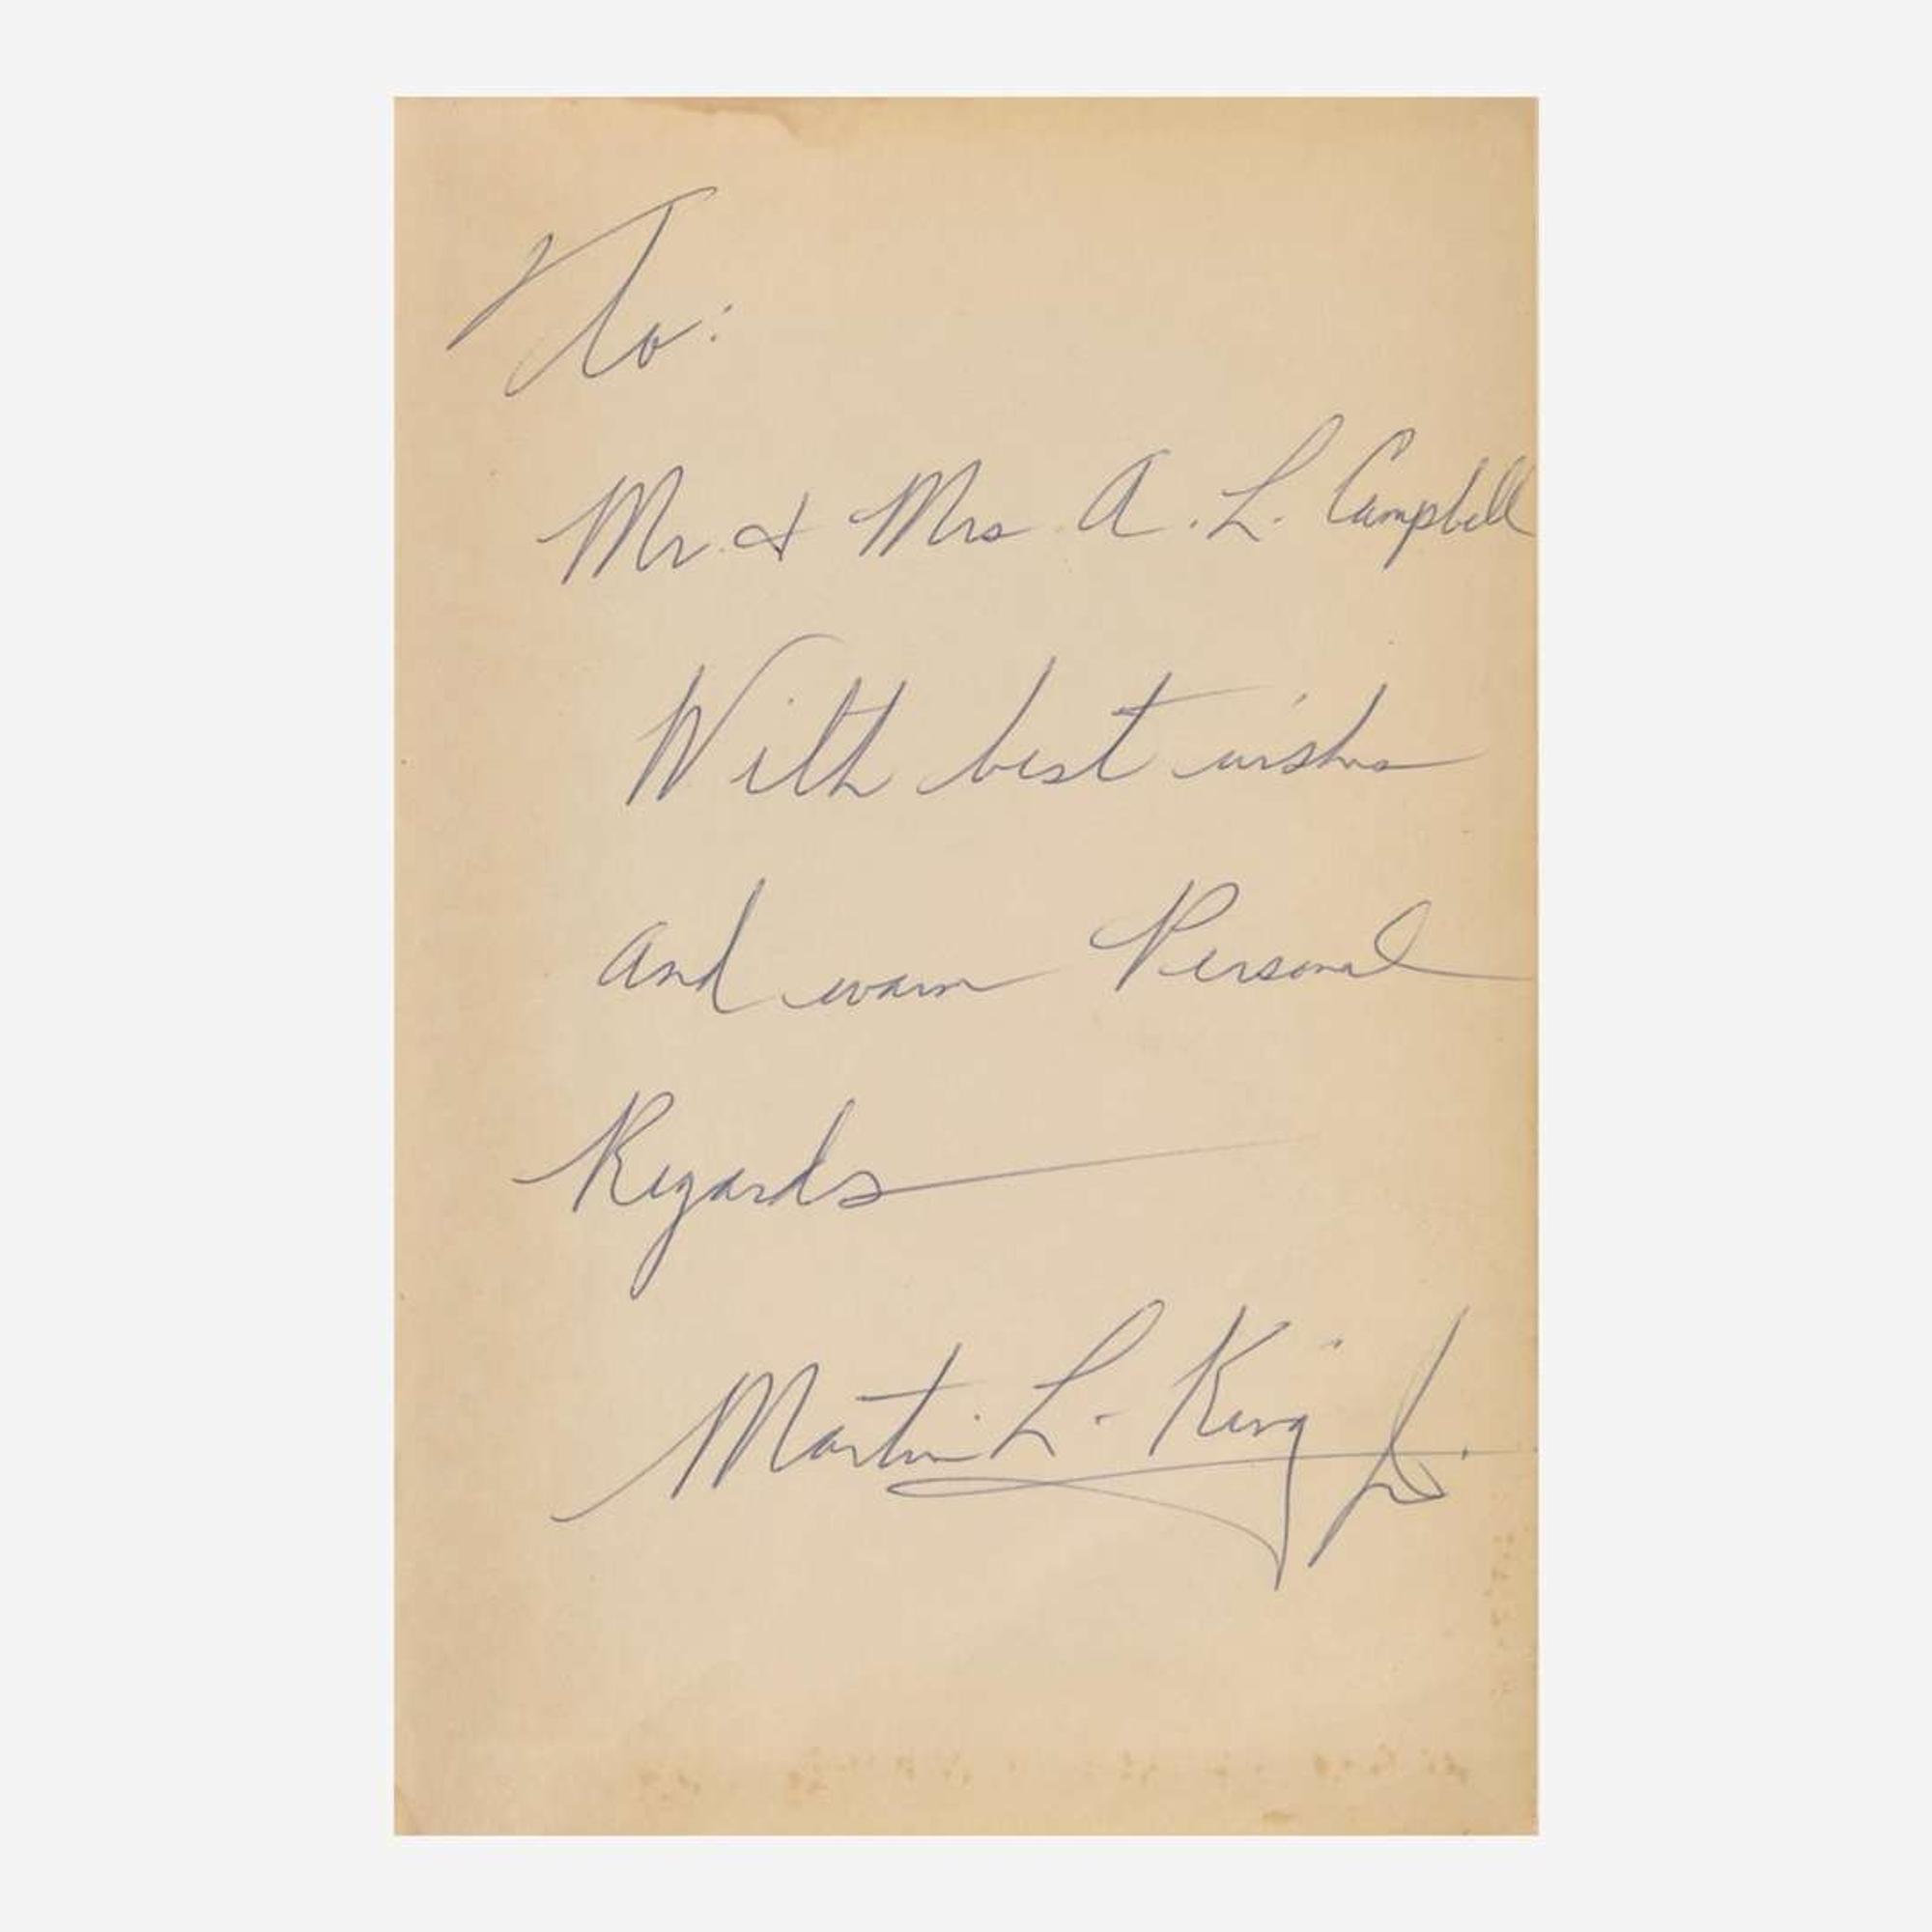 To:
Mr. & Mrs A. L. Campbell
With best wishes
and warm Personal
Regards
Martin L. King Jr.